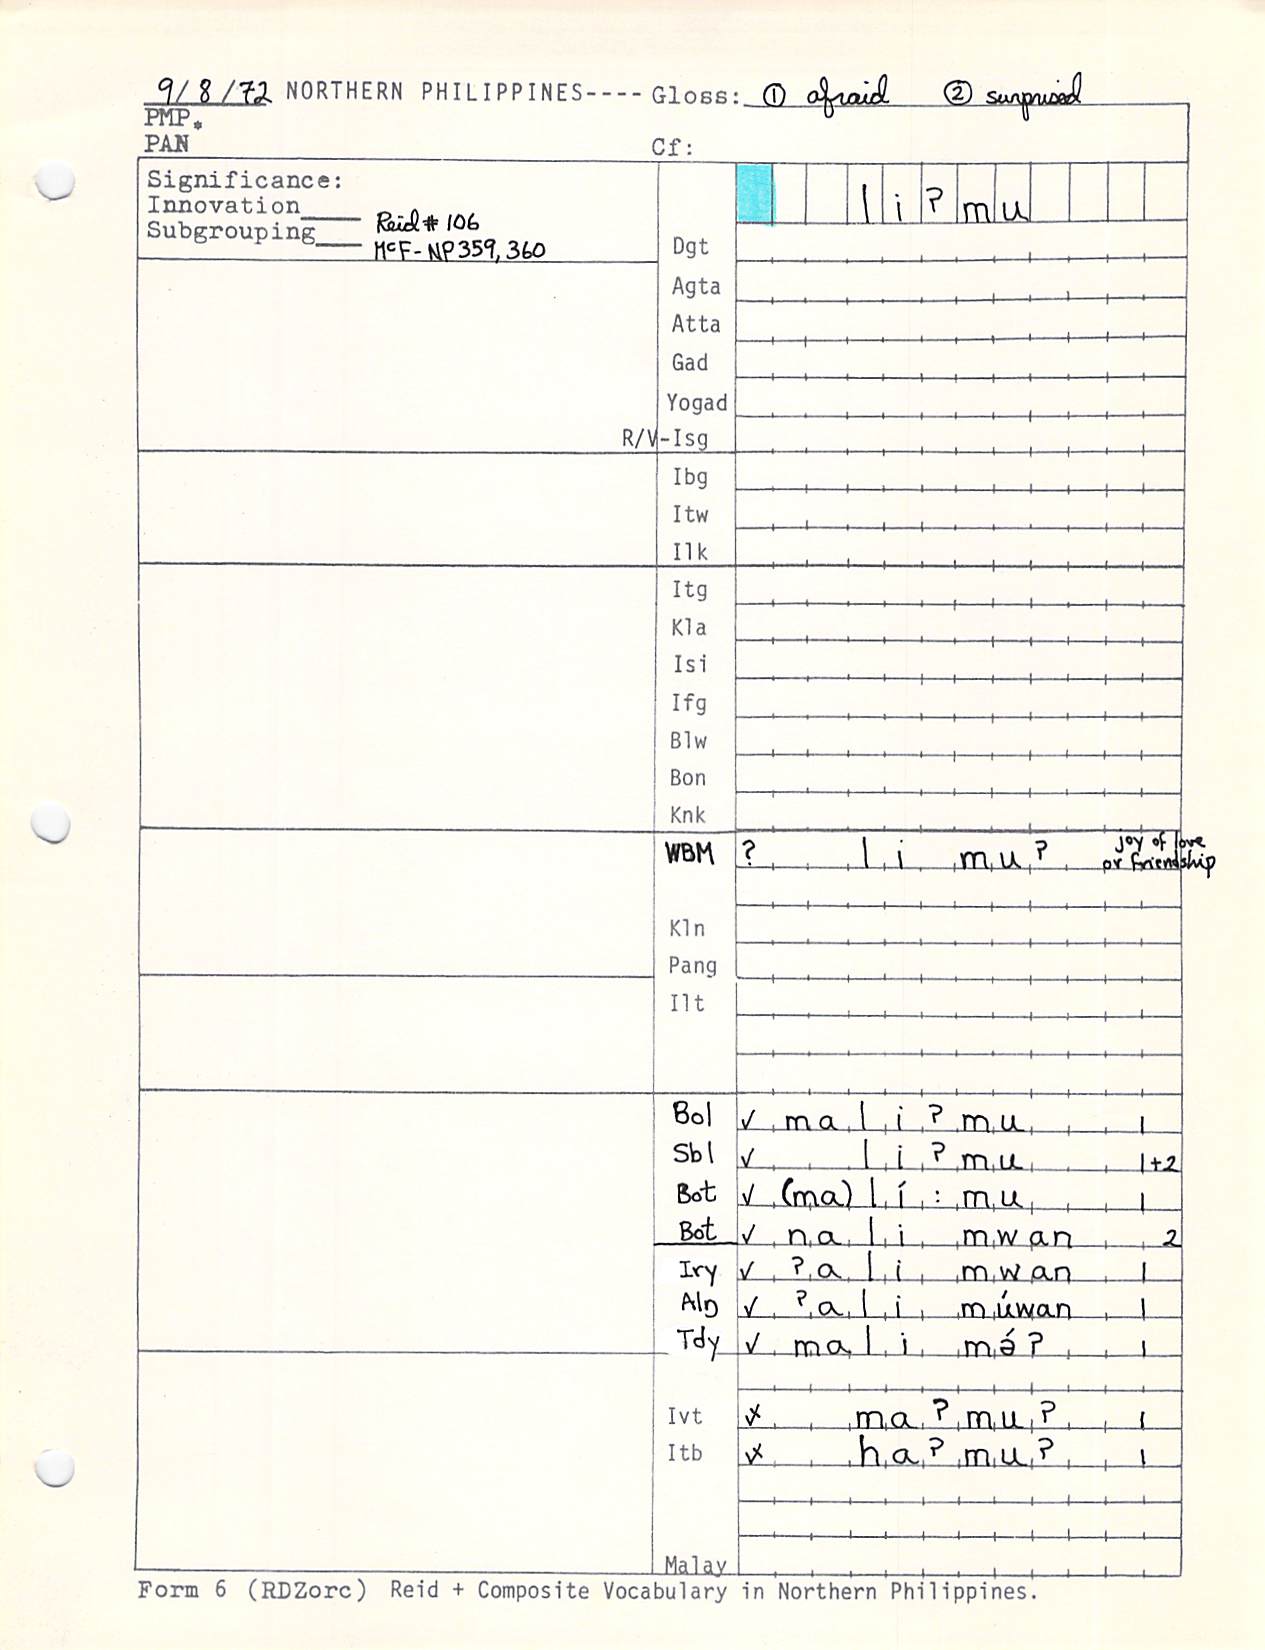 9/8/72 NORTHERN PHILIPPINES---- Gloss: ① afraid ② surprised
PMP*
PAN Cf:
Significance:
Innovation____ Reid # 106
Subgrouping___ McF - NP359, 360
liʔmu
Dgt
Agta
Atta
Gad
Yogad
R/V-Isg
Ibg
Itw
Ilk
Itg
Kla
Isi
Ifg
Blw
Bon
Knk
WBM ? li muʔ joy of love
or friendship
Kln
Pang
Ilt
Bol ✓ maliʔmu 1
Sbl ✓ liʔmu 1+2
Bot ✓ (ma)lí:mu 1
Bot ✓ nali mwan 2
Iry ✓ ʔali mwan 1
Alŋ ✓ ʔali múwan 1
Tdy ✓ mali mə́ʔ 1
Ivt x maʔmuʔ 1
Itb x haʔmuʔ 1
Malay
Form 6 (RDZorc) Reid + Composite Vocabulary in Northern Philippines.